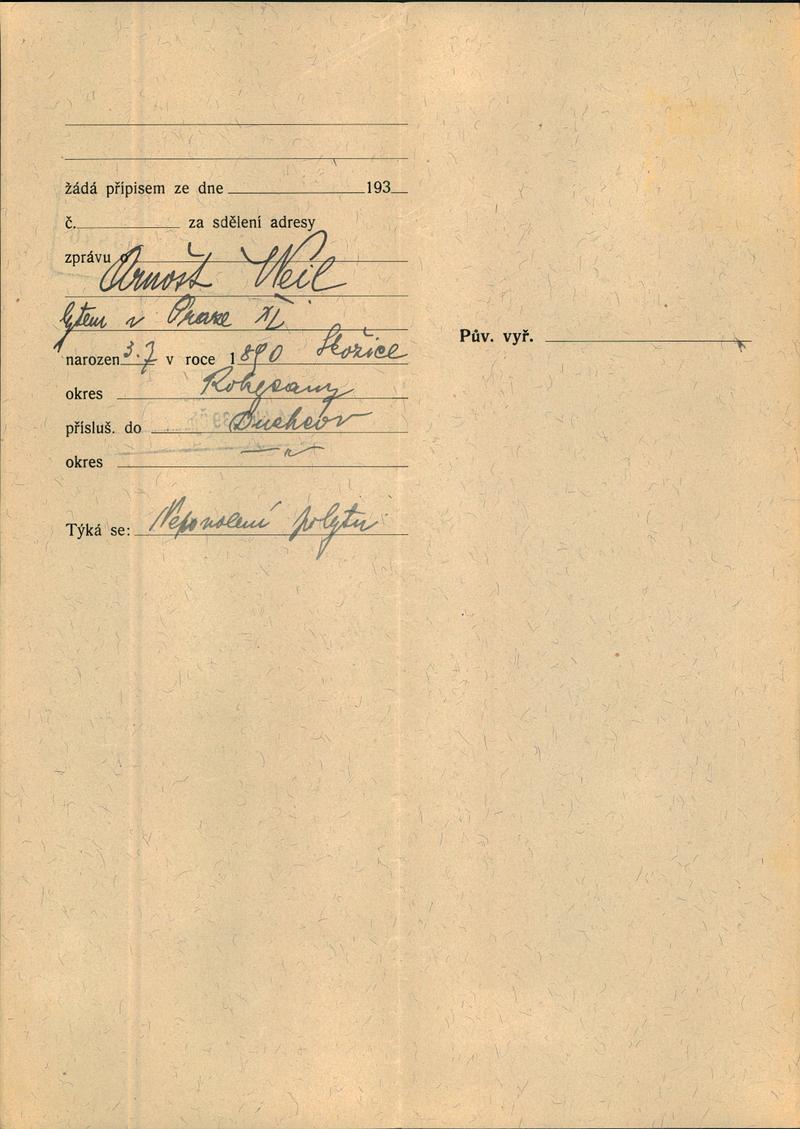 žádá přípisem ze dne 193
č. za sdělení adresy
zprávu o
Arnošt Weil
bytem v Praze XI
narozen 3.7 v roce 1890 Skořice
okres Rokycany
přísluš. do Duchcov
okres — " —
Týká se: Nepovolení pobytu
Pův. vyř.